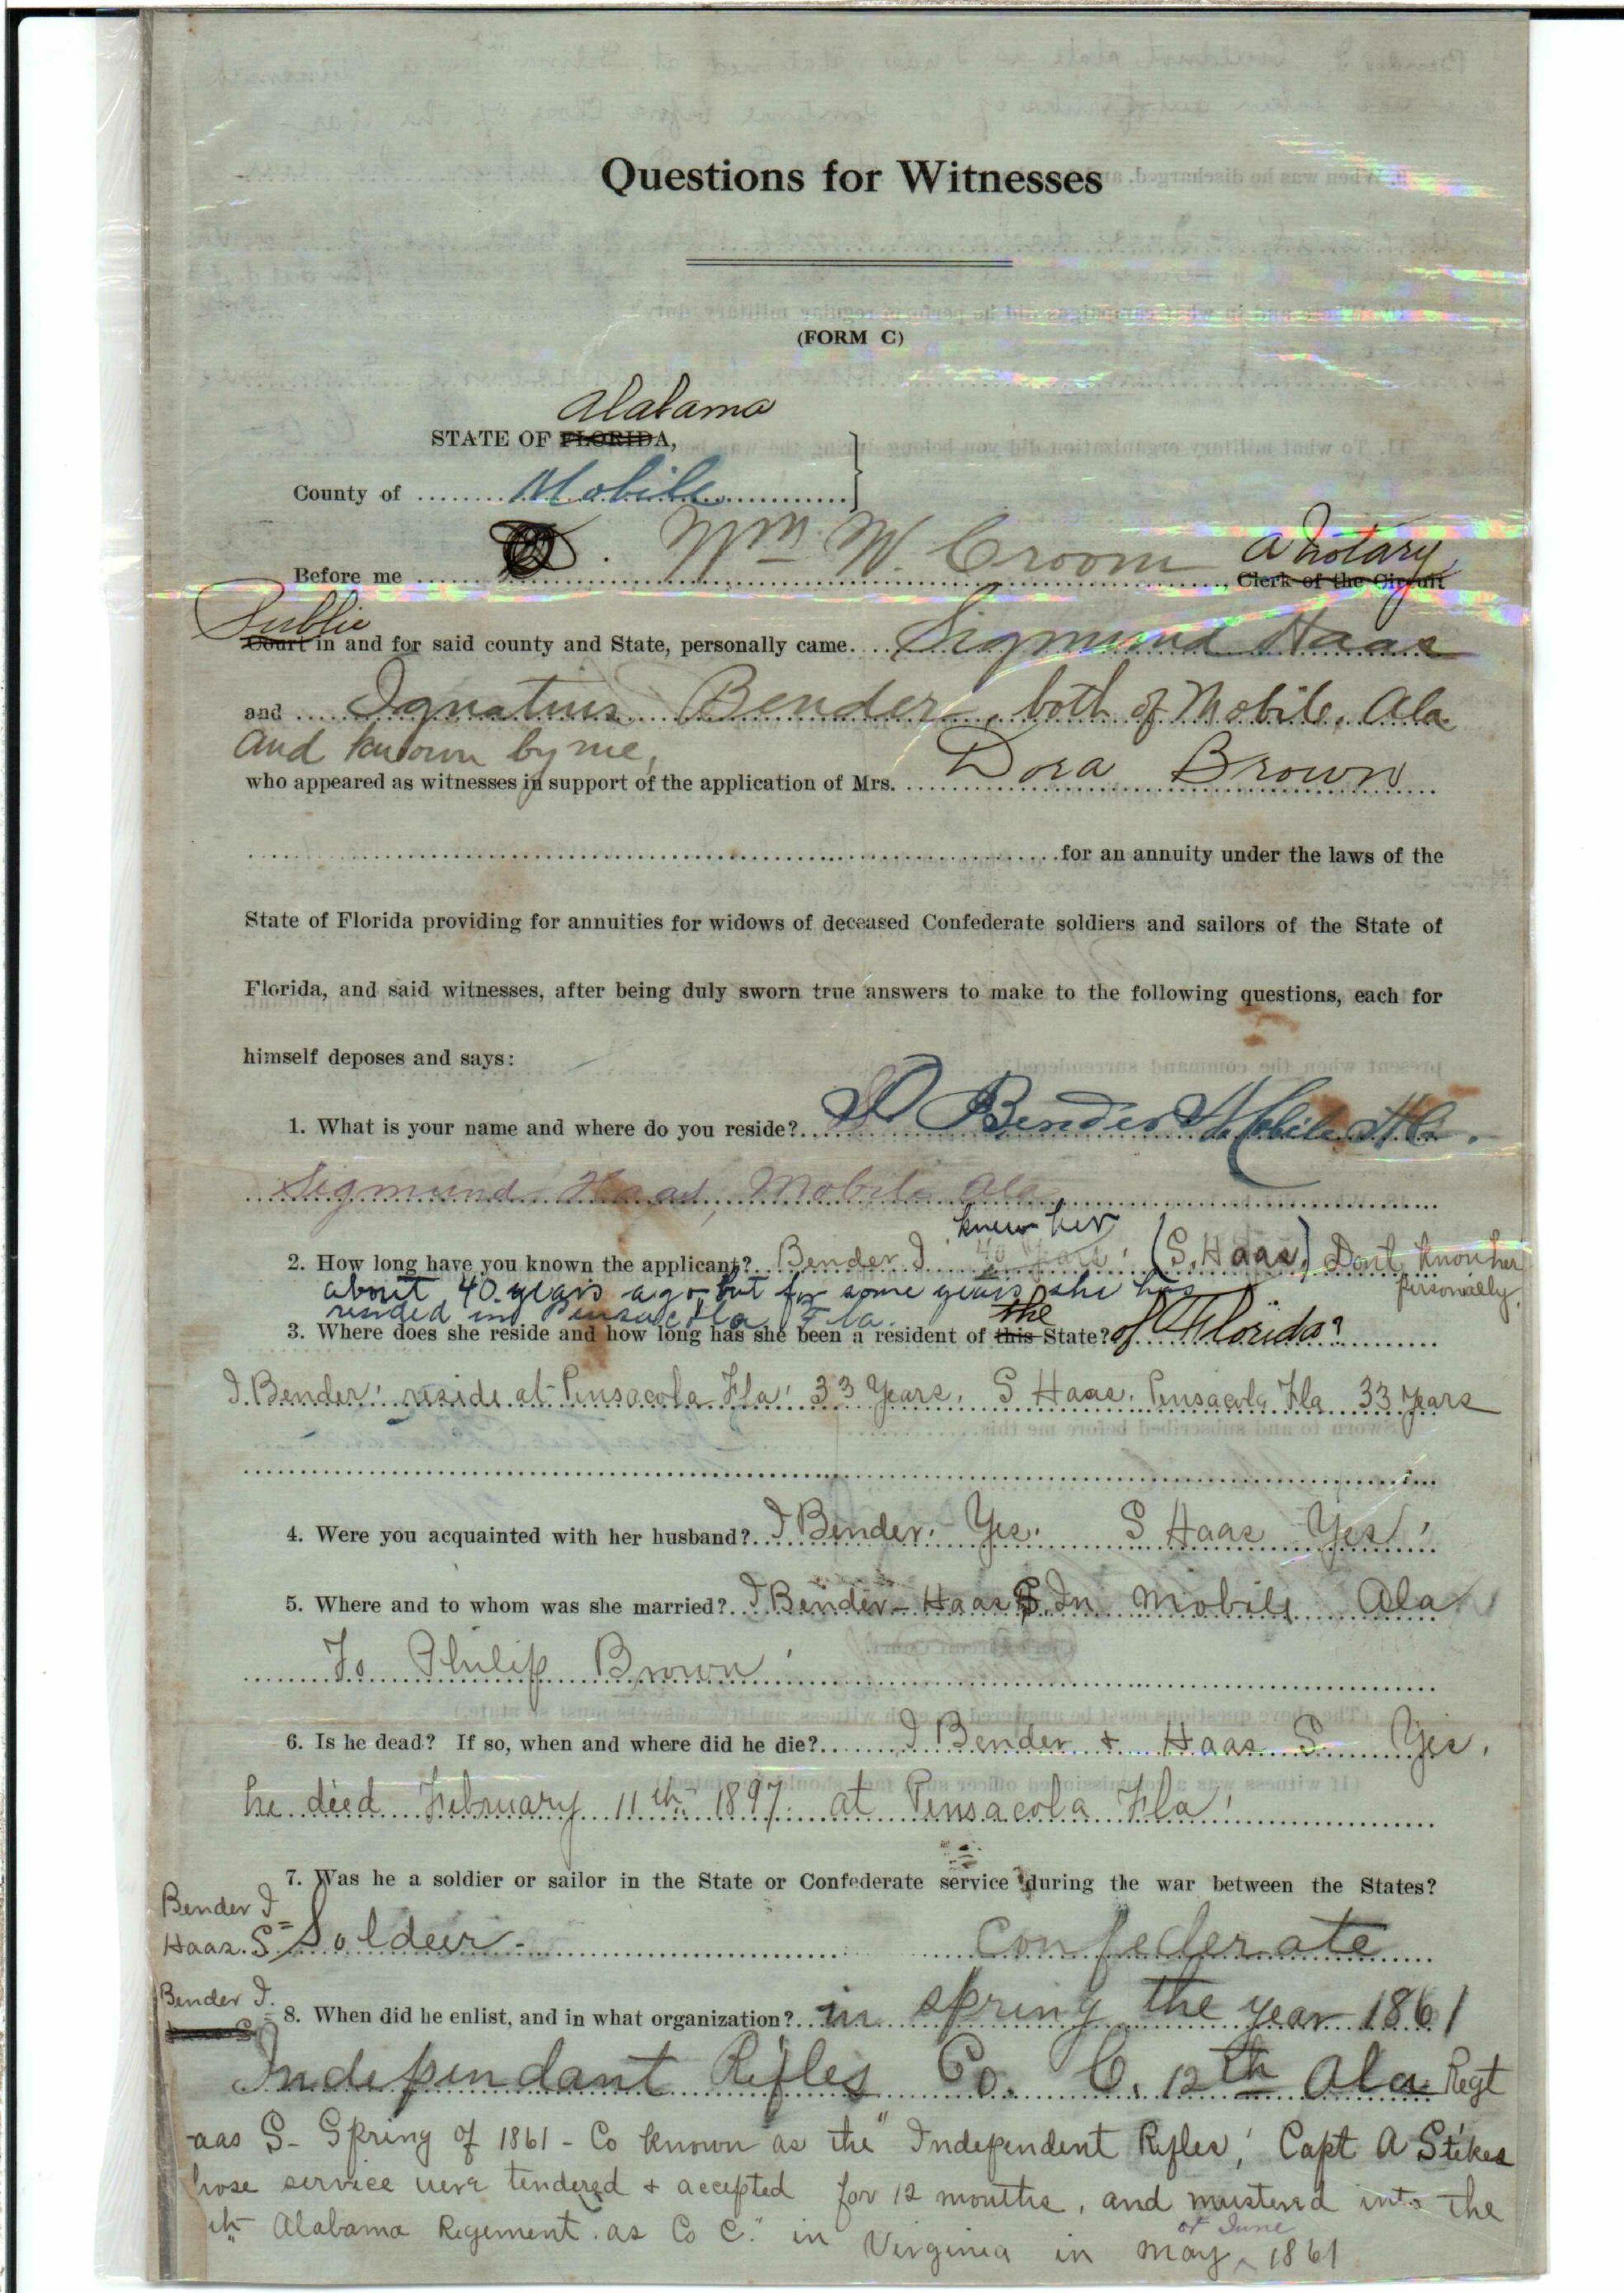 Questions for Witnesses
(FORM C)
Alabama
STATE OF FLORIDA,
County of Mobile
Before me Wm W. Croom a Notary Clerk of the Circuit
Public
Court in and for said county and State, personally came Sigmund Haas
and Ignatius Bender, both of Mobile, Ala
and known by me,
who appeared as witnesses in support of the application of Mrs. Dora Brown
for an annuity under the laws of the
State of Florida providing for annuities for widows of deceased Confederate soldiers and sailors of the State of
Florida, and said witnesses, after being duly sworn true answers to make to the following questions, each for
himself deposes and says:
1. What is your name and where do you reside? I Bender Mobile Ala.
Sigmund Haas, Mobile Ala,
knew her
2. How long have you known the applicant? Bender I 40 years. (S. Haas) Dont know her
personally.
about 40 years ago but for some years she has
resided in Pensacola Fla.
the
3. Where does she reside and how long has she been a resident of this State? of Florida?
I. Bender: reside at Pensacola Fla: 33 Years. S Haas. Pensacola Fla 33 years
4. Were you acquainted with her husband? I Bender. Yes. S Haas Yes.
5. Where and to whom was she married? I Bender - Haas S. In Mobile Ala
To Philip Brown
6. Is he dead? If so, when and where did he die? I Bender + Haas S Yes.
he died February 11th 1897 at Pensacola Fla.
7. Was he a soldier or sailor in the State or Confederate service during the war between the States?
Bender I
Haas. S= Soldeir - confederate
Bender I.
8. When did he enlist, and in what organization? in spring the year 1861
Independant Rifles Co. C. 12th Ala Regt
aas S - Spring of 1861 - Co known as the "Independent Rifles," Capt A Stikes
hose service were tendered + accepted for 12 months, and mustered into the
th Alabama Regement as Co C." in Virginia in May or June 1861